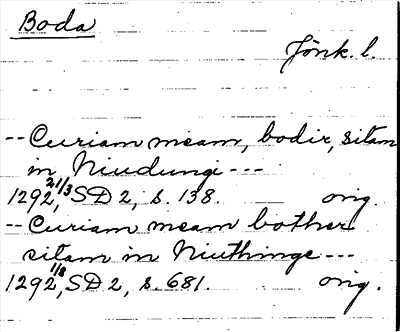 Boda
Jönk. l.
-- Curiam meam, bodir, sitam
in Niudungi ---
1292 21/3, SD 2, s. 138. orig.
-- Curiam meam bother
sitam in Niuthinge ---
1292 1/8, SD 2, s. 681. orig.